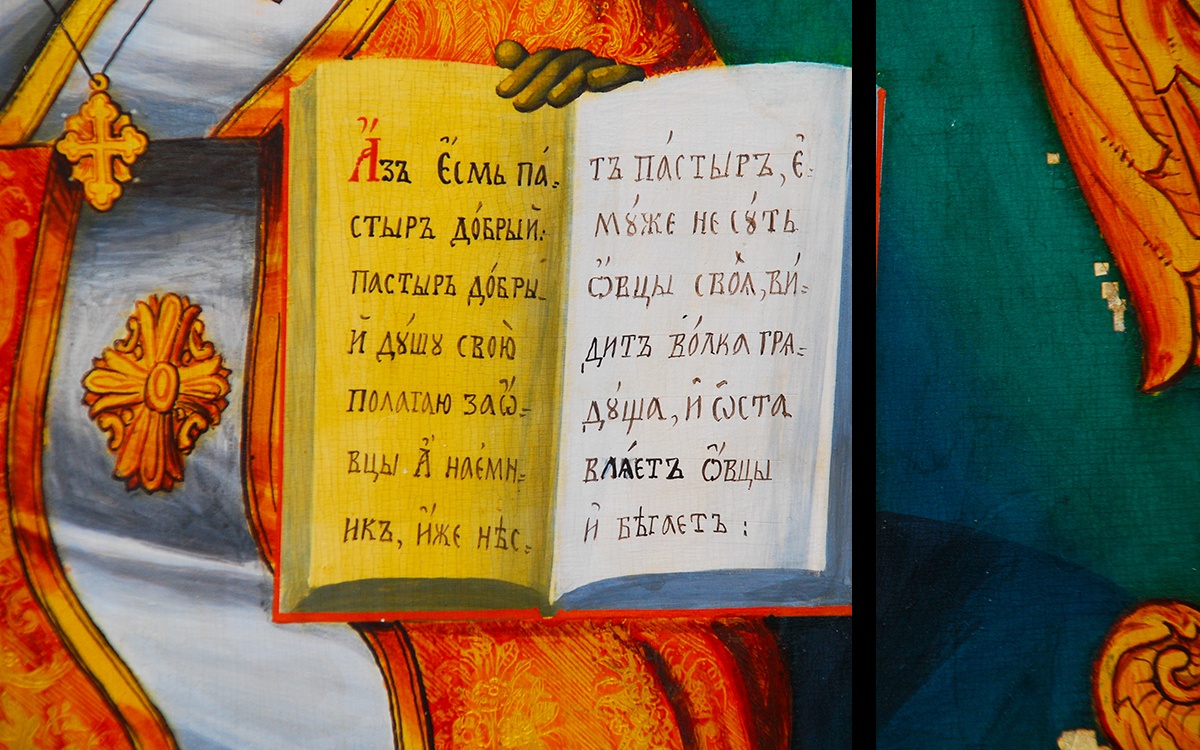 А҆́зъ є҆́смь па́-
стыръ до́брый:
пастырь до́бры_
й дꙋ́шꙋ свою̀
полагаю заѡ҆́-
вцы А҆̀ наємн-
икъ, и҆́же нѣс-
тъ па́стыръ, є҆-
мꙋ́же не сꙋ́ть
ѡ҆́вцы своѧ̀, ви́-
дитъ во́лка гра-
дꙋ́ща, и҆ ѡ҆ста
влѧ́етъ ѡ҆́вцы
и҆ бѣ́гаетъ :